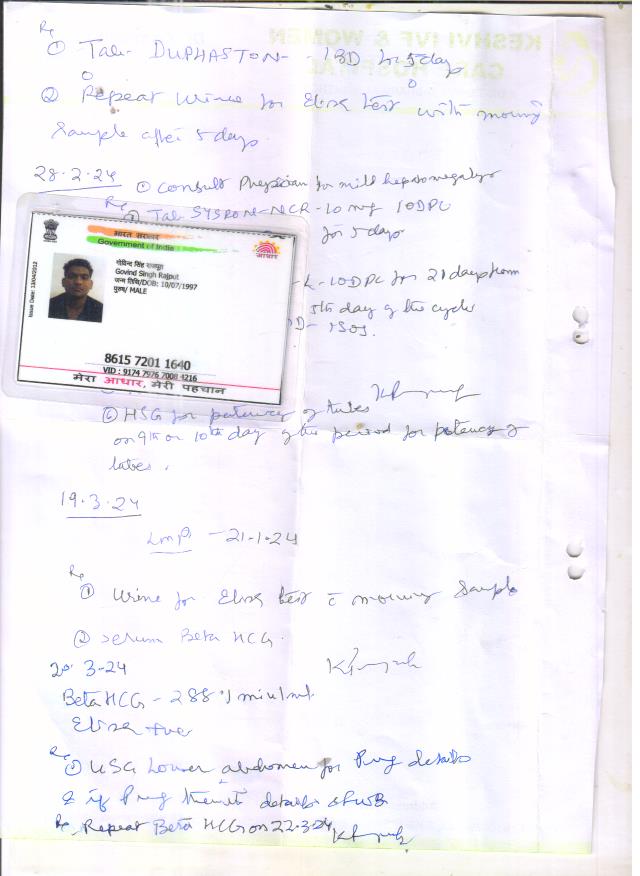 Rx
① Tab- DUPHASTON- 1BD for 5 days
② Repeat urine for Elisa test with morning
sample after 5 days.
28-2-24 ① Consult Physician for mild hepatomegaly
Rx
① Tab SYSRON-NCR-10 mg 1ODPC
for 5 days
1ODPC for 21 days from
5th day of the cycle
② HSG for patency of tubes
on 9th or 10th day of the period for patency of
tubes.
19.3.24
LMP - 21-1-24
Rx
① Urine for Elisa test c̄ morning sample
② Serum Beta HCG.
20.3-24
Beta HCG - 288.
Elisa +ve
Rx
① USG Lower abdomen for Preg details
& if Preg then details of
Rx Repeat Beta HCG on 22.3.24
भारत सरकार
Government of India
आधार
Issue Date: 13/04/2012
गोविन्द सिंह राजपूत
Govind Singh Rajput
जन्म तिथि/DOB: 10/07/1997
पुरुष/ MALE
8615 7201 1640
VID : 9174 7976 7008 4216
मेरा आधार, मेरी पहचान
KESHVI IVF & WOMEN
CARE HOSPITAL